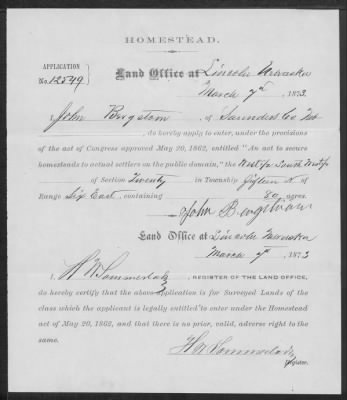 HOMESTEAD.
APPLICATION
No. 12549
Land Office at Lincoln Nebraska
March 7th, 1873.
I, John Bergstrom, of Saunders Co Neb
, do hereby apply to enter, under the provisions
of the act of Congress approved May 20, 1862, entitled "An act to secure
homesteads to actual settlers on the public domain," the West ½ South West ¼
of Section Twenty in Township fifteen N. of
Range Six East, containing 80 acres.
John Bergstrom
Land Office at Lincoln Nebraska
March 7th, 1873
I, H M, REGISTER OF THE LAND OFFICE,
do hereby certify that the above application is for Surveyed Lands of the
class which the applicant is legally entitled to enter under the Homestead
act of May 20, 1862, and that there is no prior, valid, adverse right to the
same.